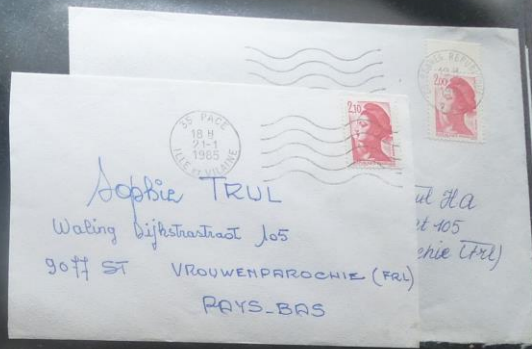 35 PACE
18 H
21-1
1985
ILLE ET VILAINE
2,10
Sophie TRUL
Waling Dijkstrastraat 105
9077 ST VROUWENPAROCHIE (FRL)
PAYS-BAS
2,00
HA
105
chie (Frl)